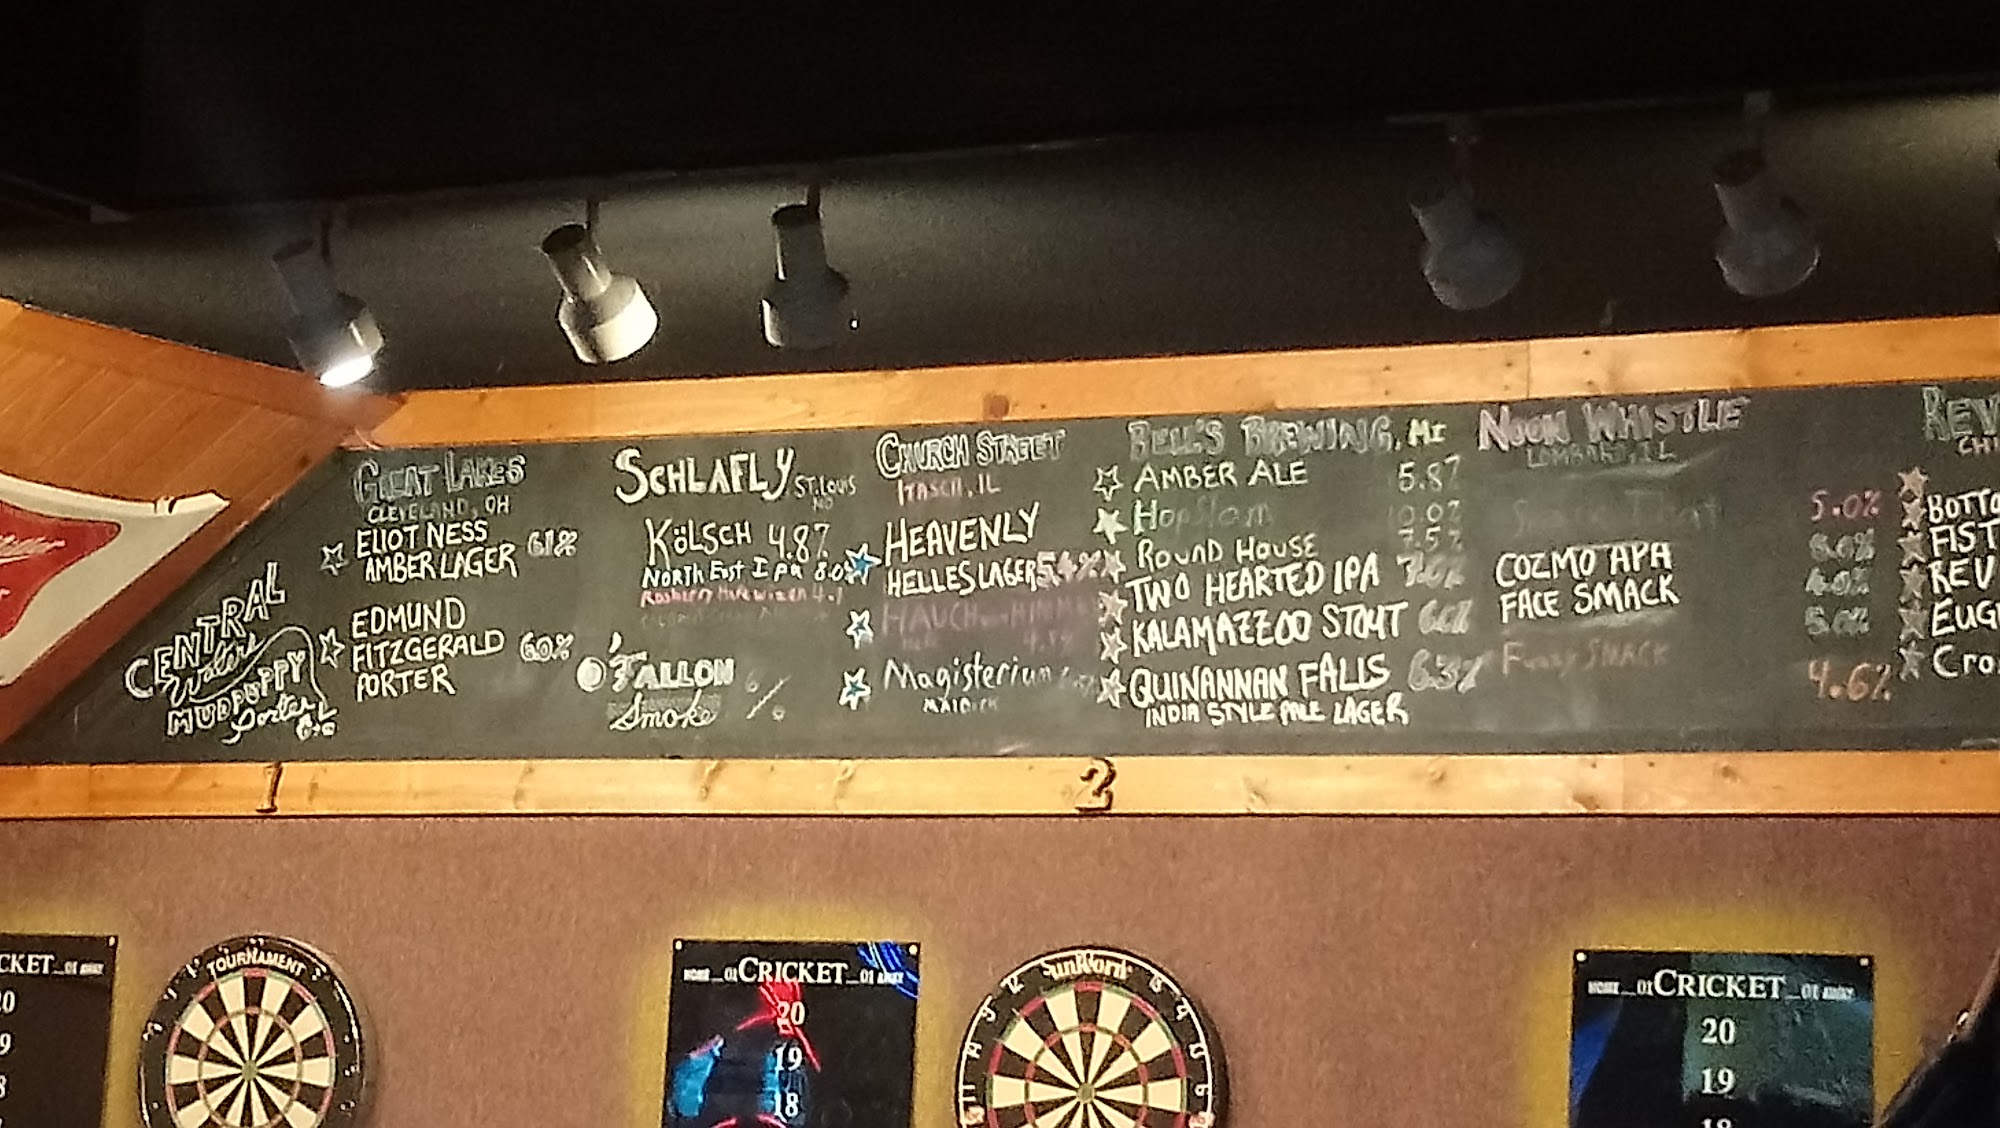 CENTRAL
Waters
MUDPUPPY
Porter
GREAT LAKES
CLEVELAND, OH
ELIOT NESS
AMBER LAGER 6.1%
EDMUND
FITZGERALD 6.0%
PORTER
SCHLAFLY ST. LOUIS
MO
KÖLSCH 4.8%
NORTH EAST IPA 8.0%
O'FALLON
Smoke
CHURCH STREET
ITASCA, IL
HEAVENLY
HELLES LAGER 5.4%
Magisterium
BELL'S BREWING, MI
AMBER ALE 5.8%
HopSlam 10.0%
ROUND HOUSE 7.5%
TWO HEARTED IPA 7.0%
KALAMAZZOO STOUT
QUINANNAN FALLS 6.3%
INDIA STYLE PALE LAGER
NOON WHISTLE
LOMBARD, IL
5.0%
COZMO APA
FACE SMACK
5.0%
SMACK 4.6%
REV
CHI
BOTTO
FIST
REV
EUG
CRO
1
2
CKET_01 AWAY
20
19
18
TOURNAMENT
HOME_01 CRICKET_01 AWAY
20
19
18
HOME_01 CRICKET_01 AWAY
20
19
18